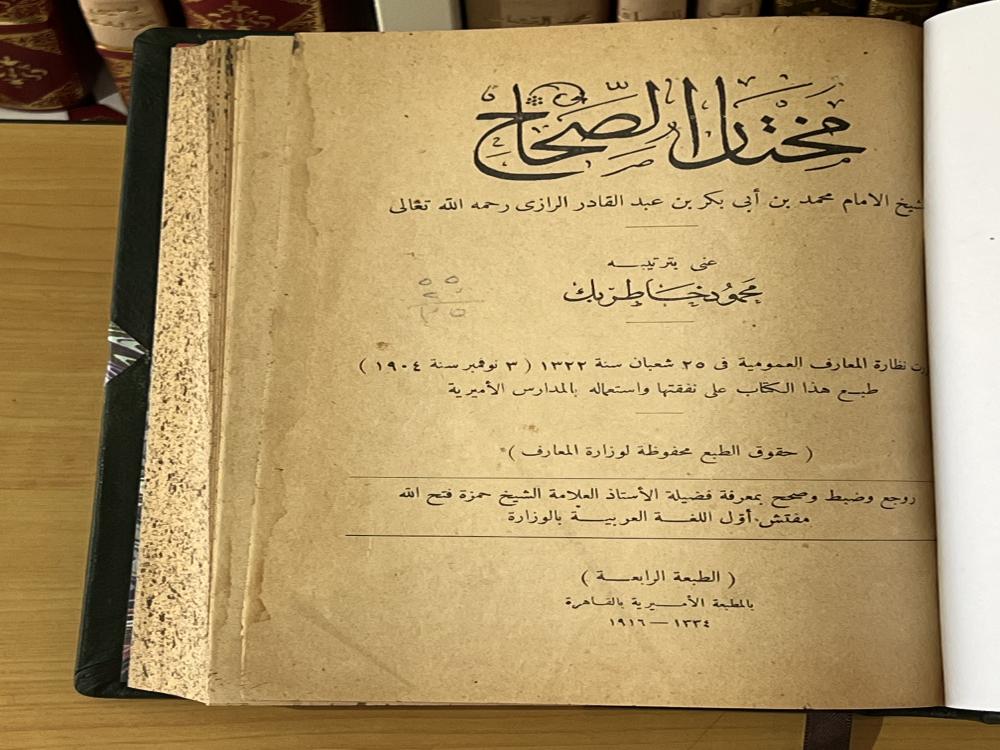 مختار الصّحاح
شيخ الامام محمد بن أبى بكر بن عبد القادر الرازى رحمه الله تعالى
عنى بترتيبه
محمود خاطر بك
نظارة المعارف العمومية فى ٢٥ شعبان سنة ١٣٢٢ ( ٣ نوفمبر سنة ١٩٠٤ )
طبع هذا الكتاب على نفقتها واستعماله بالمدارس الأميرية
( حقوق الطبع محفوظة لوزارة المعارف )
روجع وضبط وصحح بمعرفة فضيلة الأستاذ العلامة الشيخ حمزة فتح الله
مفتش أوّل اللغة العربية بالوزارة
( الطبعة الرابعة )
بالمطبعة الأميرية بالقاهرة
١٣٣٤ — ١٩١٦